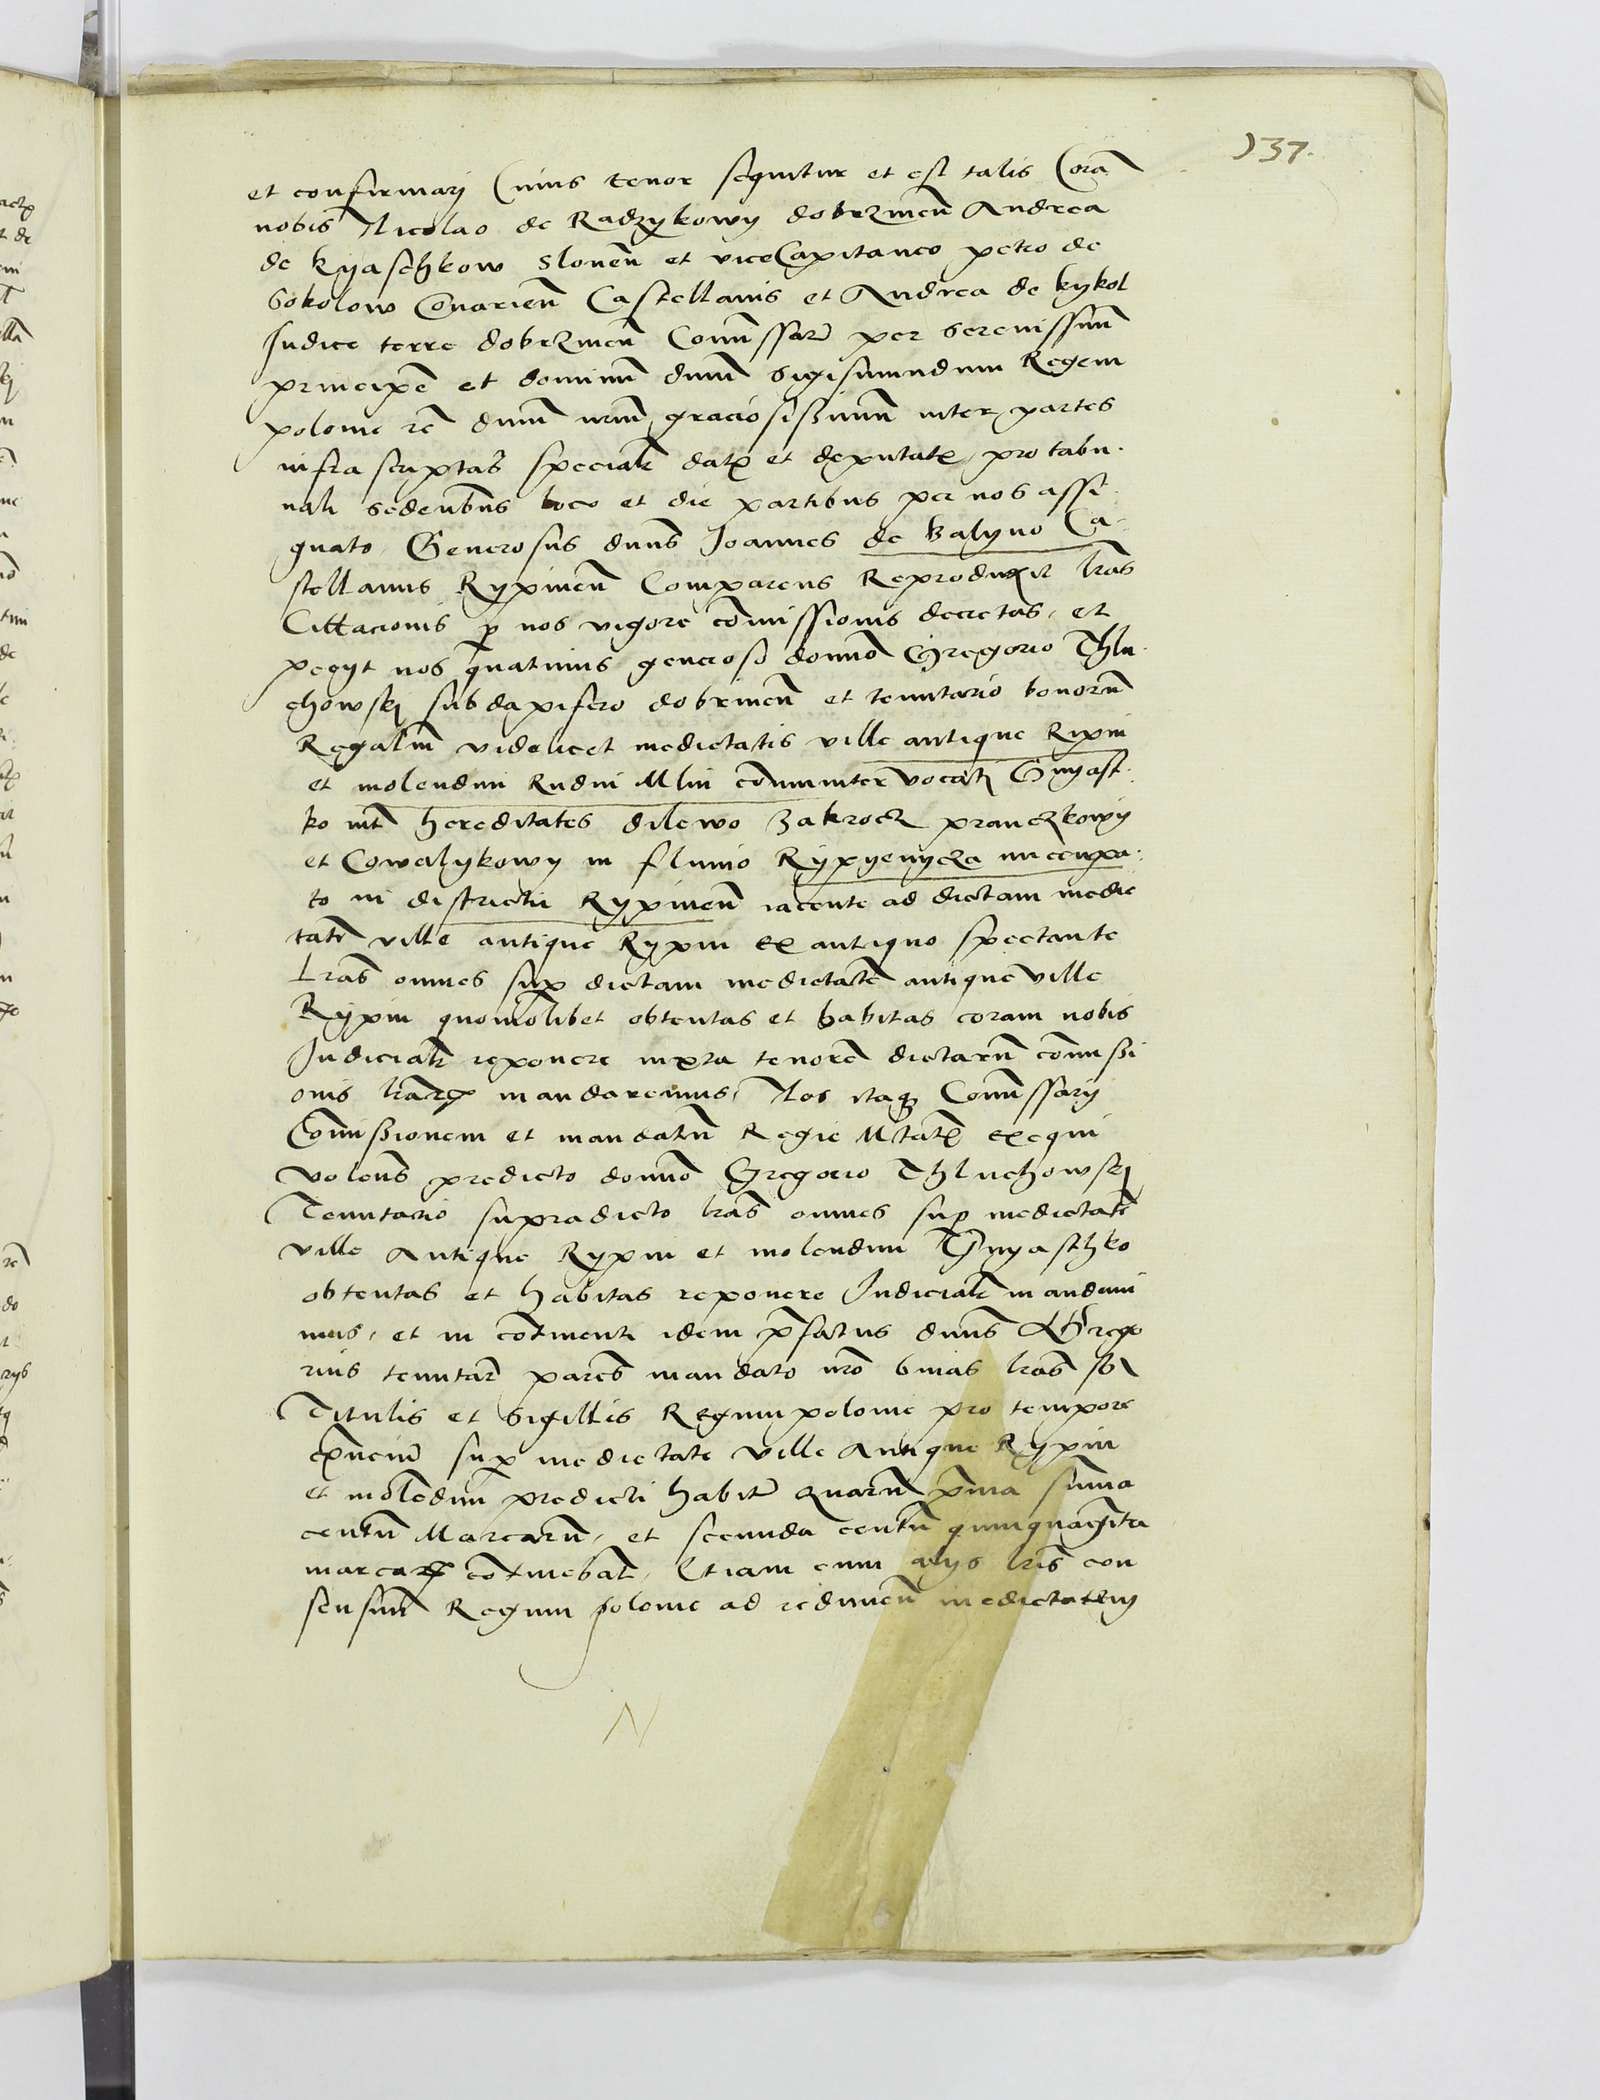 137.
et confirmarj Cuius tenor sequitur et est talis Corã
nobis Nicolao de Radzykowy dobrzineñ Andrea
de Kyaschkow Sloneñ et viceCapitaneo petro de
Sokolow Conarieñ Castellanis et Andrea de kykol
Iudice terre dobrzineñ Comissar per serenissim̃
principẽ et dominũ dnũ Sigismundum Regem
polonie rc̃ dnũ nrm̃ graciosissimũ inter partes
infra scriptas specialr dat et deputat pro tabu-
nali sedentibus loco et die partibus per nos assi-
gnato, Generosus dnus Joannes de Balyno Ca-
stellanus Rypineñ Comparens Reproduxit lras
Cittacionis p nos vigore comissionis decretas, et
pecyt nos quatinus generoso domno Gregorio Thlu-
chowskj subdapifero dobrineñ et tenutario bonorũ
Regaliũ videlicet medietatis ville antique Ripin
et molendini Rudni Mlin comuniter vocatj Gnyast-
ko int hereditates dilewo Zakrock pranczkowy
et Cowalykowy in fluuio Rypyenycza nuncupa-
to in districtu Rypineñ iacente ad dictam medie
tatẽ ville antique Rypin ex antiquo spectante
Lras omnes sup dictam medietatẽ antique ville
Rypin quomolibet obtentas et habitas coram nobis
Iudicialr reponere iuxta tenorẽ dictarũ comissi
onis lrar mandaremus, Nos itaq Comissarij
Comissionem et mandatũ Regie Mtatis exequi
volens predicto domno Gregorio Thluchowskj
Tenutario supradicto lras omnes sup medietatẽ
ville Antique Rypin et molendini Gnyasthko
obtentas et habitas reponere Iudicialr mandaui
mus, et in continenti idem prefatus dnus Grego
rius tenutar parens mandato nro binas lras sb
Titulis et Sigillis Regum polonie pro tempore
exnciũ sup medietate ville Antique Rypin
et molendini predicti habitas quarũ prima suma
centũ Marcarũ, et secunda centũ quinquaginta
marcar continebat, Etiam cum alijs lris con
sensuũ Regum polonie ad redimeñ medietatem
N